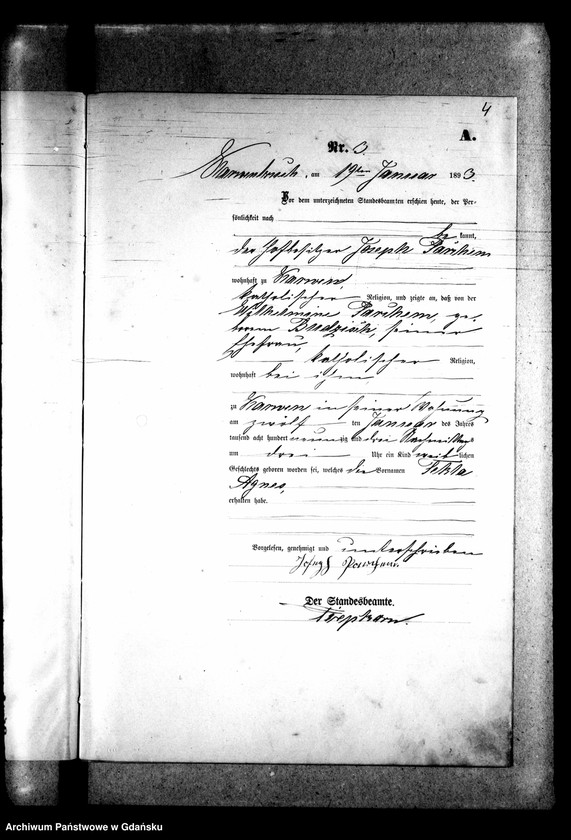 4
A.
Nr. 3.
Karwenbruch, am 19ten Januar 1893.
Vor dem unterzeichneten Standesbeamten erschien heute, der Per-
sönlichkeit nach
be kannt,
der Hofbesitzer Joseph
wohnhaft zu Karwen,
katholischer Religion, und zeigte an, daß von der
Wilhelmine ge-
borenen seiner
Ehefrau,
katholischer Religion,
wohnhaft bei ihm
zu Karwen in seiner Wohnung
am zwölf ten Januar des Jahres
tausend acht hundert neunzig und drei Nachmittags
um drei Uhr ein Kind weiblichen
Geschlechts geboren worden sei, welches die Vornamen Tekla
Agnes,
erhalten habe.
Vorgelesen, genehmigt und unterschrieben
Josef
Der Standesbeamte.
Archiwum Państwowe w Gdańsku